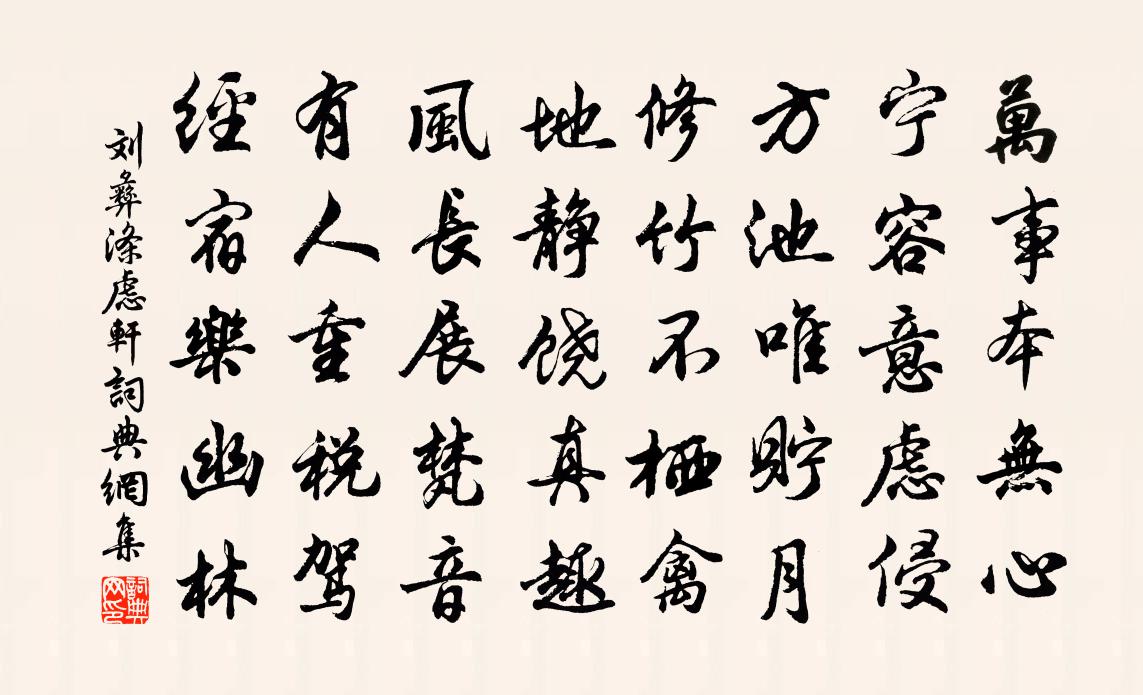 萬事本無心
宁容意慮侵
方池唯貯月
修竹不栖禽
地靜饶真趣
風長展梵音
有人重税駕
經宿樂幽林
刘彝滌慮軒詞典網集
詞典网印